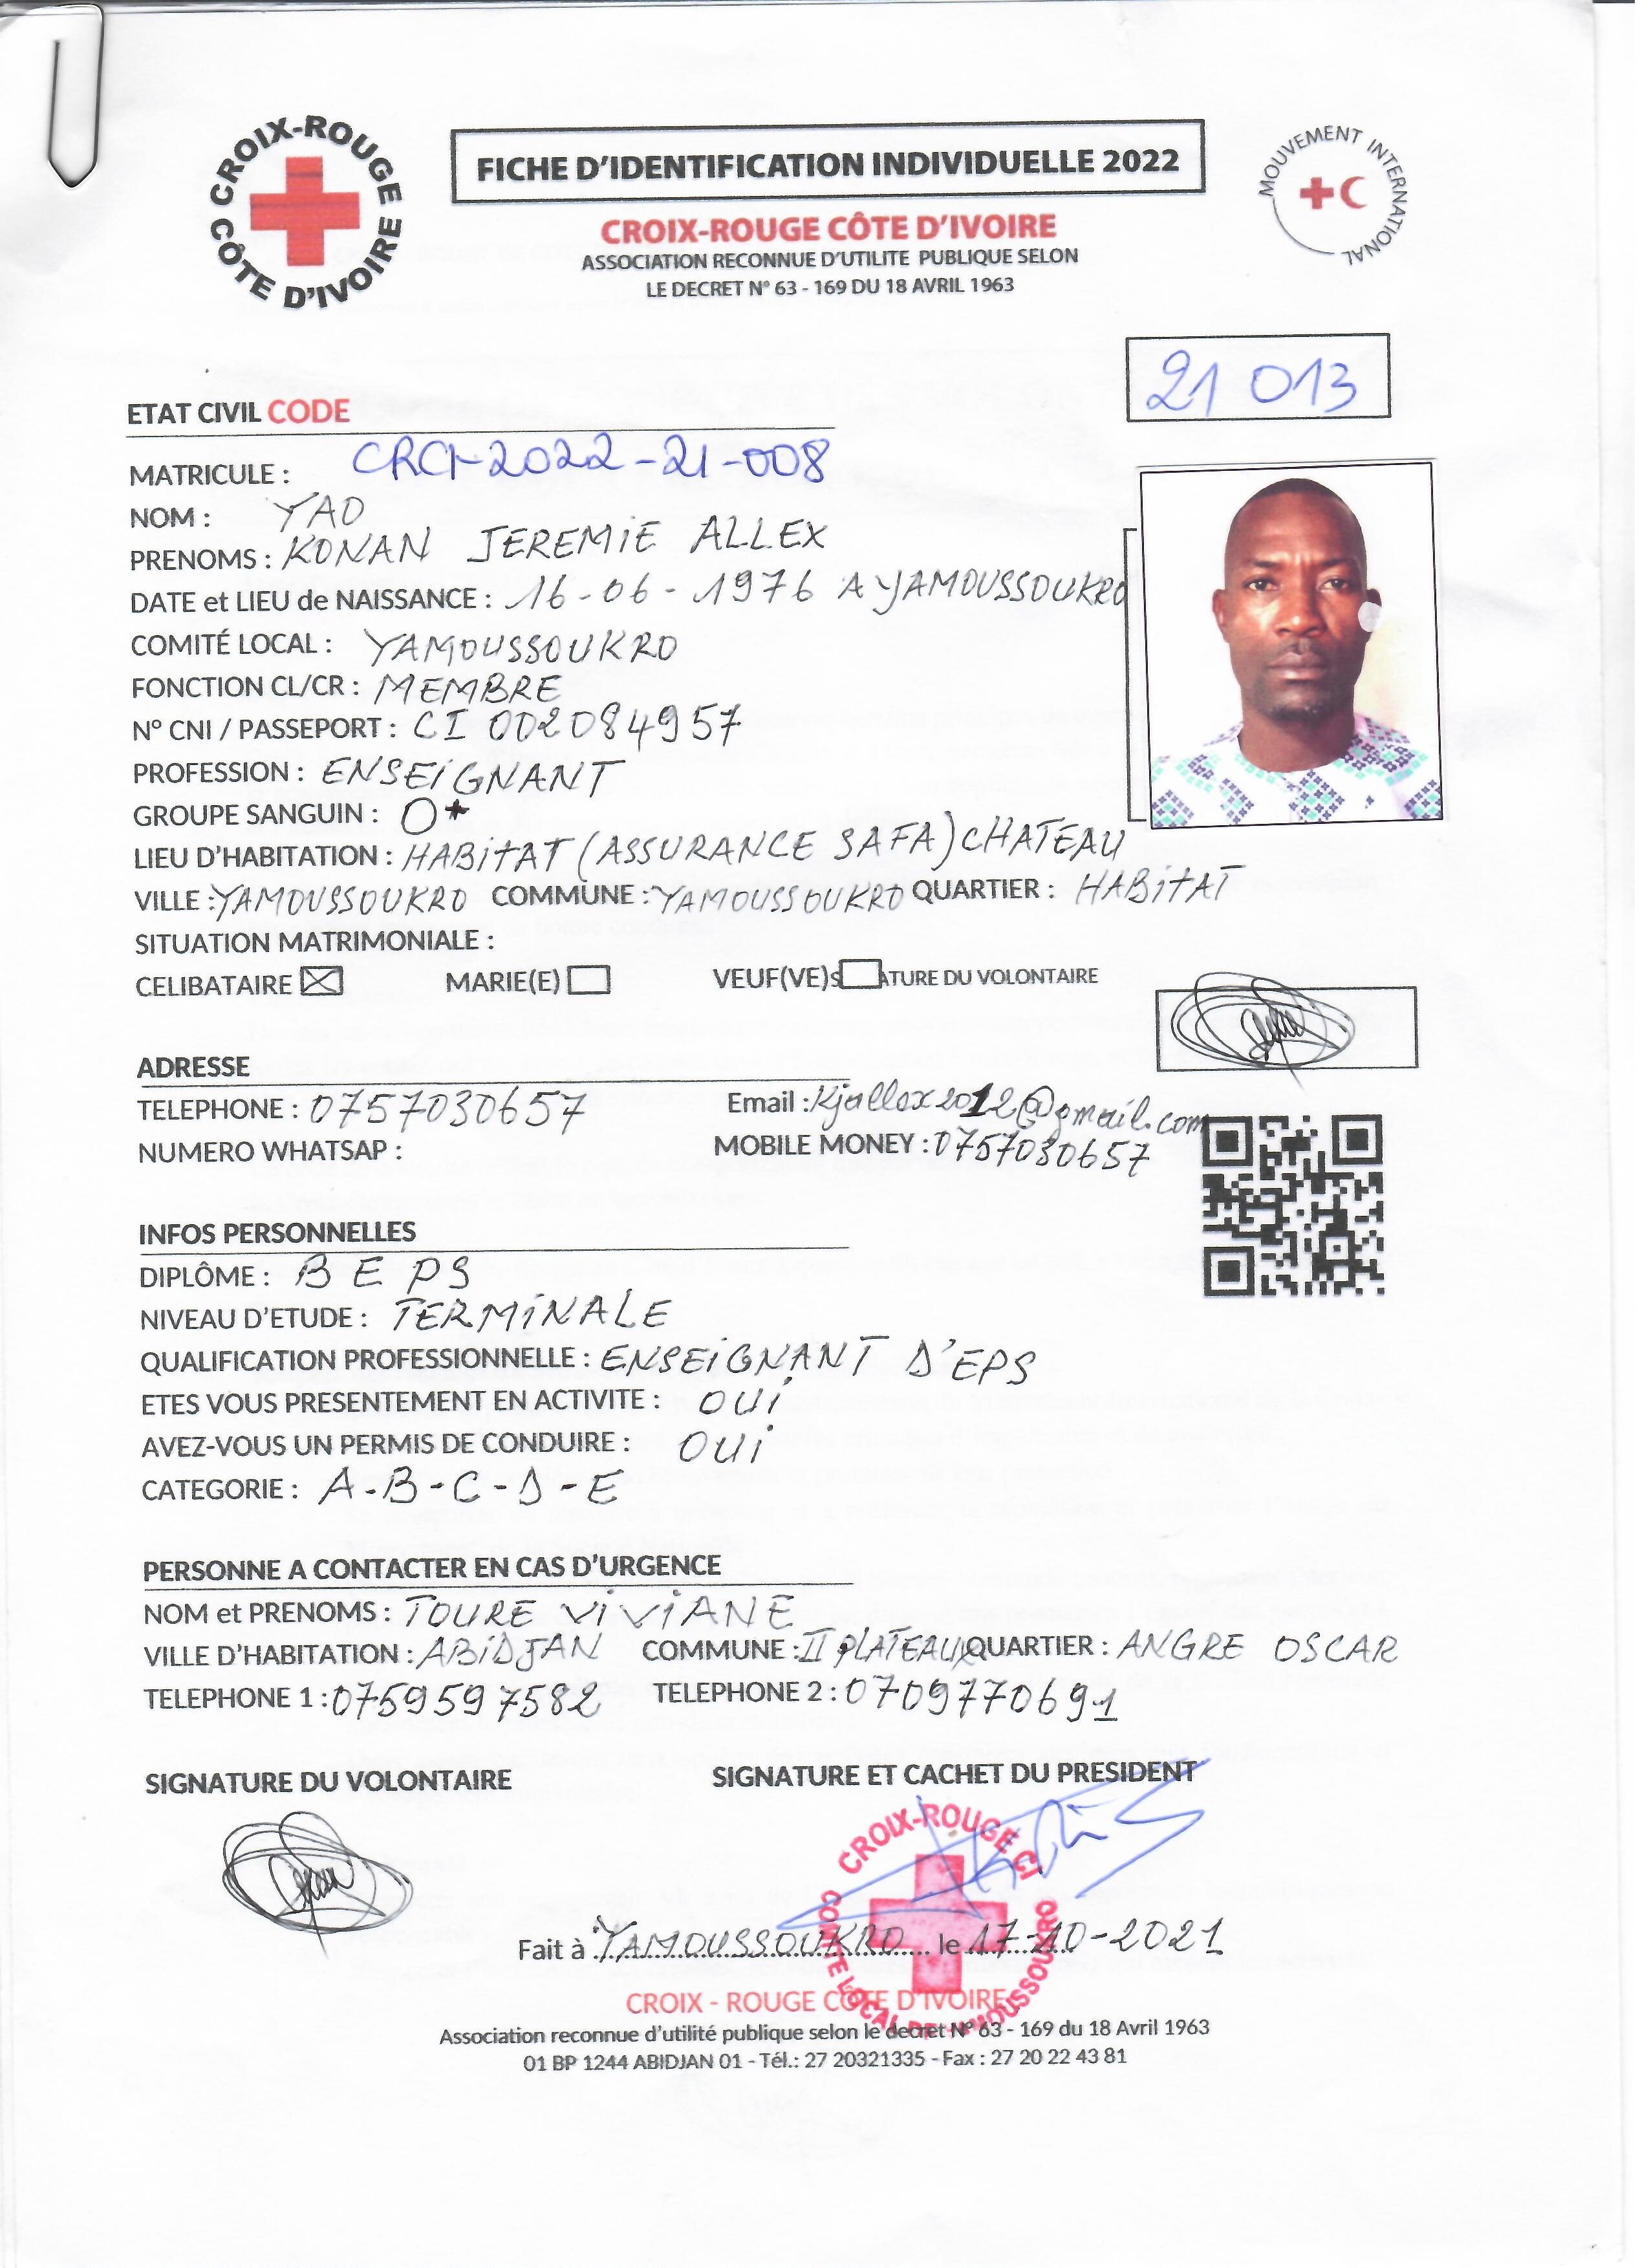 CROIX-ROUGE CÔTE D'IVOIRE
FICHE D'IDENTIFICATION INDIVIDUELLE 2022
MOUVEMENT INTERNATIONAL
CROIX-ROUGE CÔTE D'IVOIRE
ASSOCIATION RECONNUE D'UTILITE PUBLIQUE SELON
LE DECRET N° 63 - 169 DU 18 AVRIL 1963
21 013
ETAT CIVIL CODE
MATRICULE : CRCI-2022-21-008
NOM : YAO
PRENOMS : KONAN JEREMIE ALLEX
DATE et LIEU de NAISSANCE : 16-06-1976 A YAMOUSSOUKRO
COMITÉ LOCAL : YAMOUSSOUKRO
FONCTION CL/CR : MEMBRE
N° CNI / PASSEPORT : CI 002084957
PROFESSION : ENSEIGNANT
GROUPE SANGUIN : O+
LIEU D'HABITATION : HABITAT (ASSURANCE SAFA) CHATEAU
VILLE : YAMOUSSOUKRO COMMUNE : YAMOUSSOUKRO QUARTIER : HABITAT
SITUATION MATRIMONIALE :
CELIBATAIRE MARIE(E) VEUF(VE) S ATURE DU VOLONTAIRE
ADRESSE
TELEPHONE : 0757030657 Email : Kjallex2012@gmail.com
NUMERO WHATSAP : MOBILE MONEY : 0757030657
INFOS PERSONNELLES
DIPLÔME : BEPS
NIVEAU D'ETUDE : TERMINALE
QUALIFICATION PROFESSIONNELLE : ENSEIGNANT D'EPS
ETES VOUS PRESENTEMENT EN ACTIVITE : OUI
AVEZ-VOUS UN PERMIS DE CONDUIRE : OUI
CATEGORIE : A-B-C-D-E
PERSONNE A CONTACTER EN CAS D'URGENCE
NOM et PRENOMS : TOURE VIVIANE
VILLE D'HABITATION : ABIDJAN COMMUNE : II PLATEAUX QUARTIER : ANGRE OSCAR
TELEPHONE 1 : 0759597582 TELEPHONE 2 : 0709770691
SIGNATURE DU VOLONTAIRE SIGNATURE ET CACHET DU PRESIDENT
CROIX-ROUGE CI
COMITE LOCAL DE YAMOUSSOUKRO
Fait à YAMOUSSOUKRO le 17-10-2021
CROIX - ROUGE COTE D'IVOIRE
Association reconnue d'utilité publique selon le decret N° 63 - 169 du 18 Avril 1963
01 BP 1244 ABIDJAN 01 - Tél.: 27 20321335 - Fax : 27 20 22 43 81